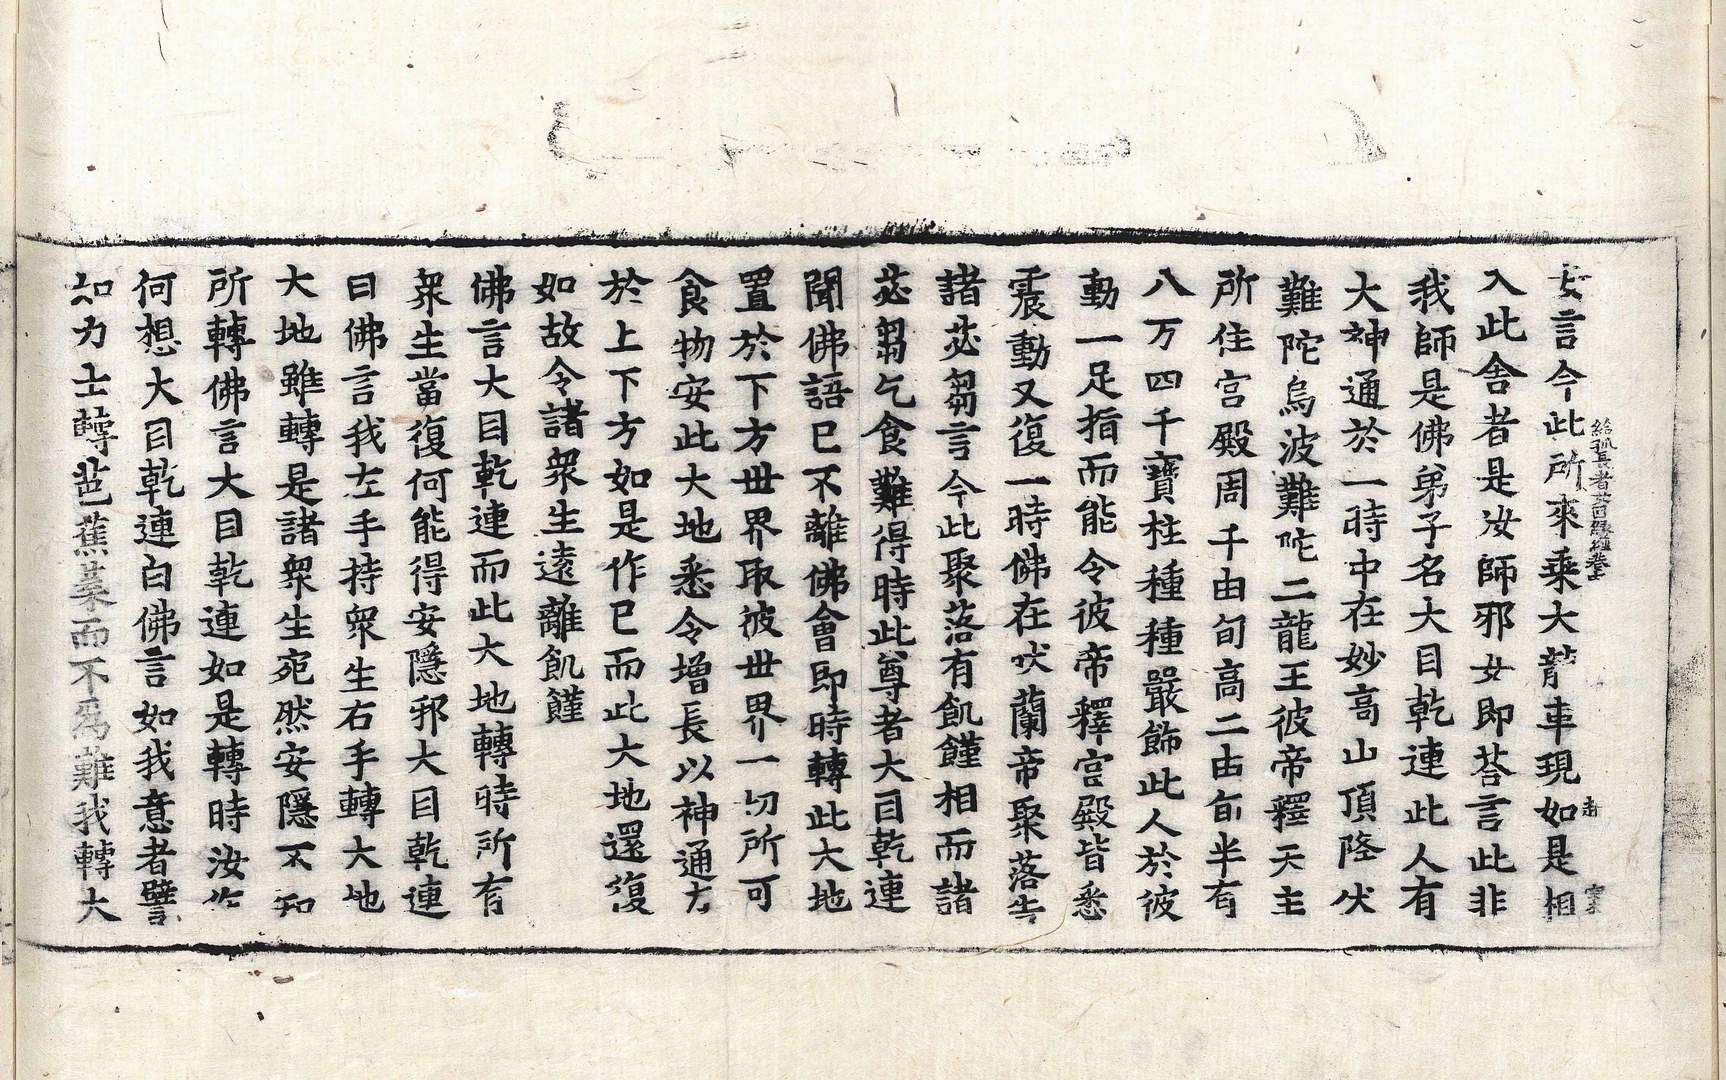 女言今此所來乘大龍車現如是相
入此舍者是汝師邪女即荅言此非
我師是佛弟子名大目乾連此人有
大神通於一時中在妙高山頂降伏
難陀烏波難陀二龍王彼帝釋天主
所住宫殿周千由旬高二由旬半有
八万四千寶柱種種嚴飾此人於彼
動一足指而能令彼帝釋宫殿皆悉
震動又復一時佛在吠蘭帝聚落告
諸苾芻言今此聚落有飢饉相而諸
苾芻乞食難得時此尊者大目乾連
聞佛語已不離佛會即時轉此大地
置於下方世界取彼世界一切所可
食物安此大地悉令增長以神通力
於上下方如是作已而此大地還復
如故令諸衆生遠離飢饉
佛言大目乾連而此大地轉時所有
衆生當復何能得安隱邪大目乾連
曰佛言我左手持衆生右手轉大地
大地雖轉是諸衆生宛然安隱不知
所轉佛言大目乾連如是轉時汝作
何想大目乾連白佛言如我意者譬
如力士轉芭蕉葉而不爲難我轉大